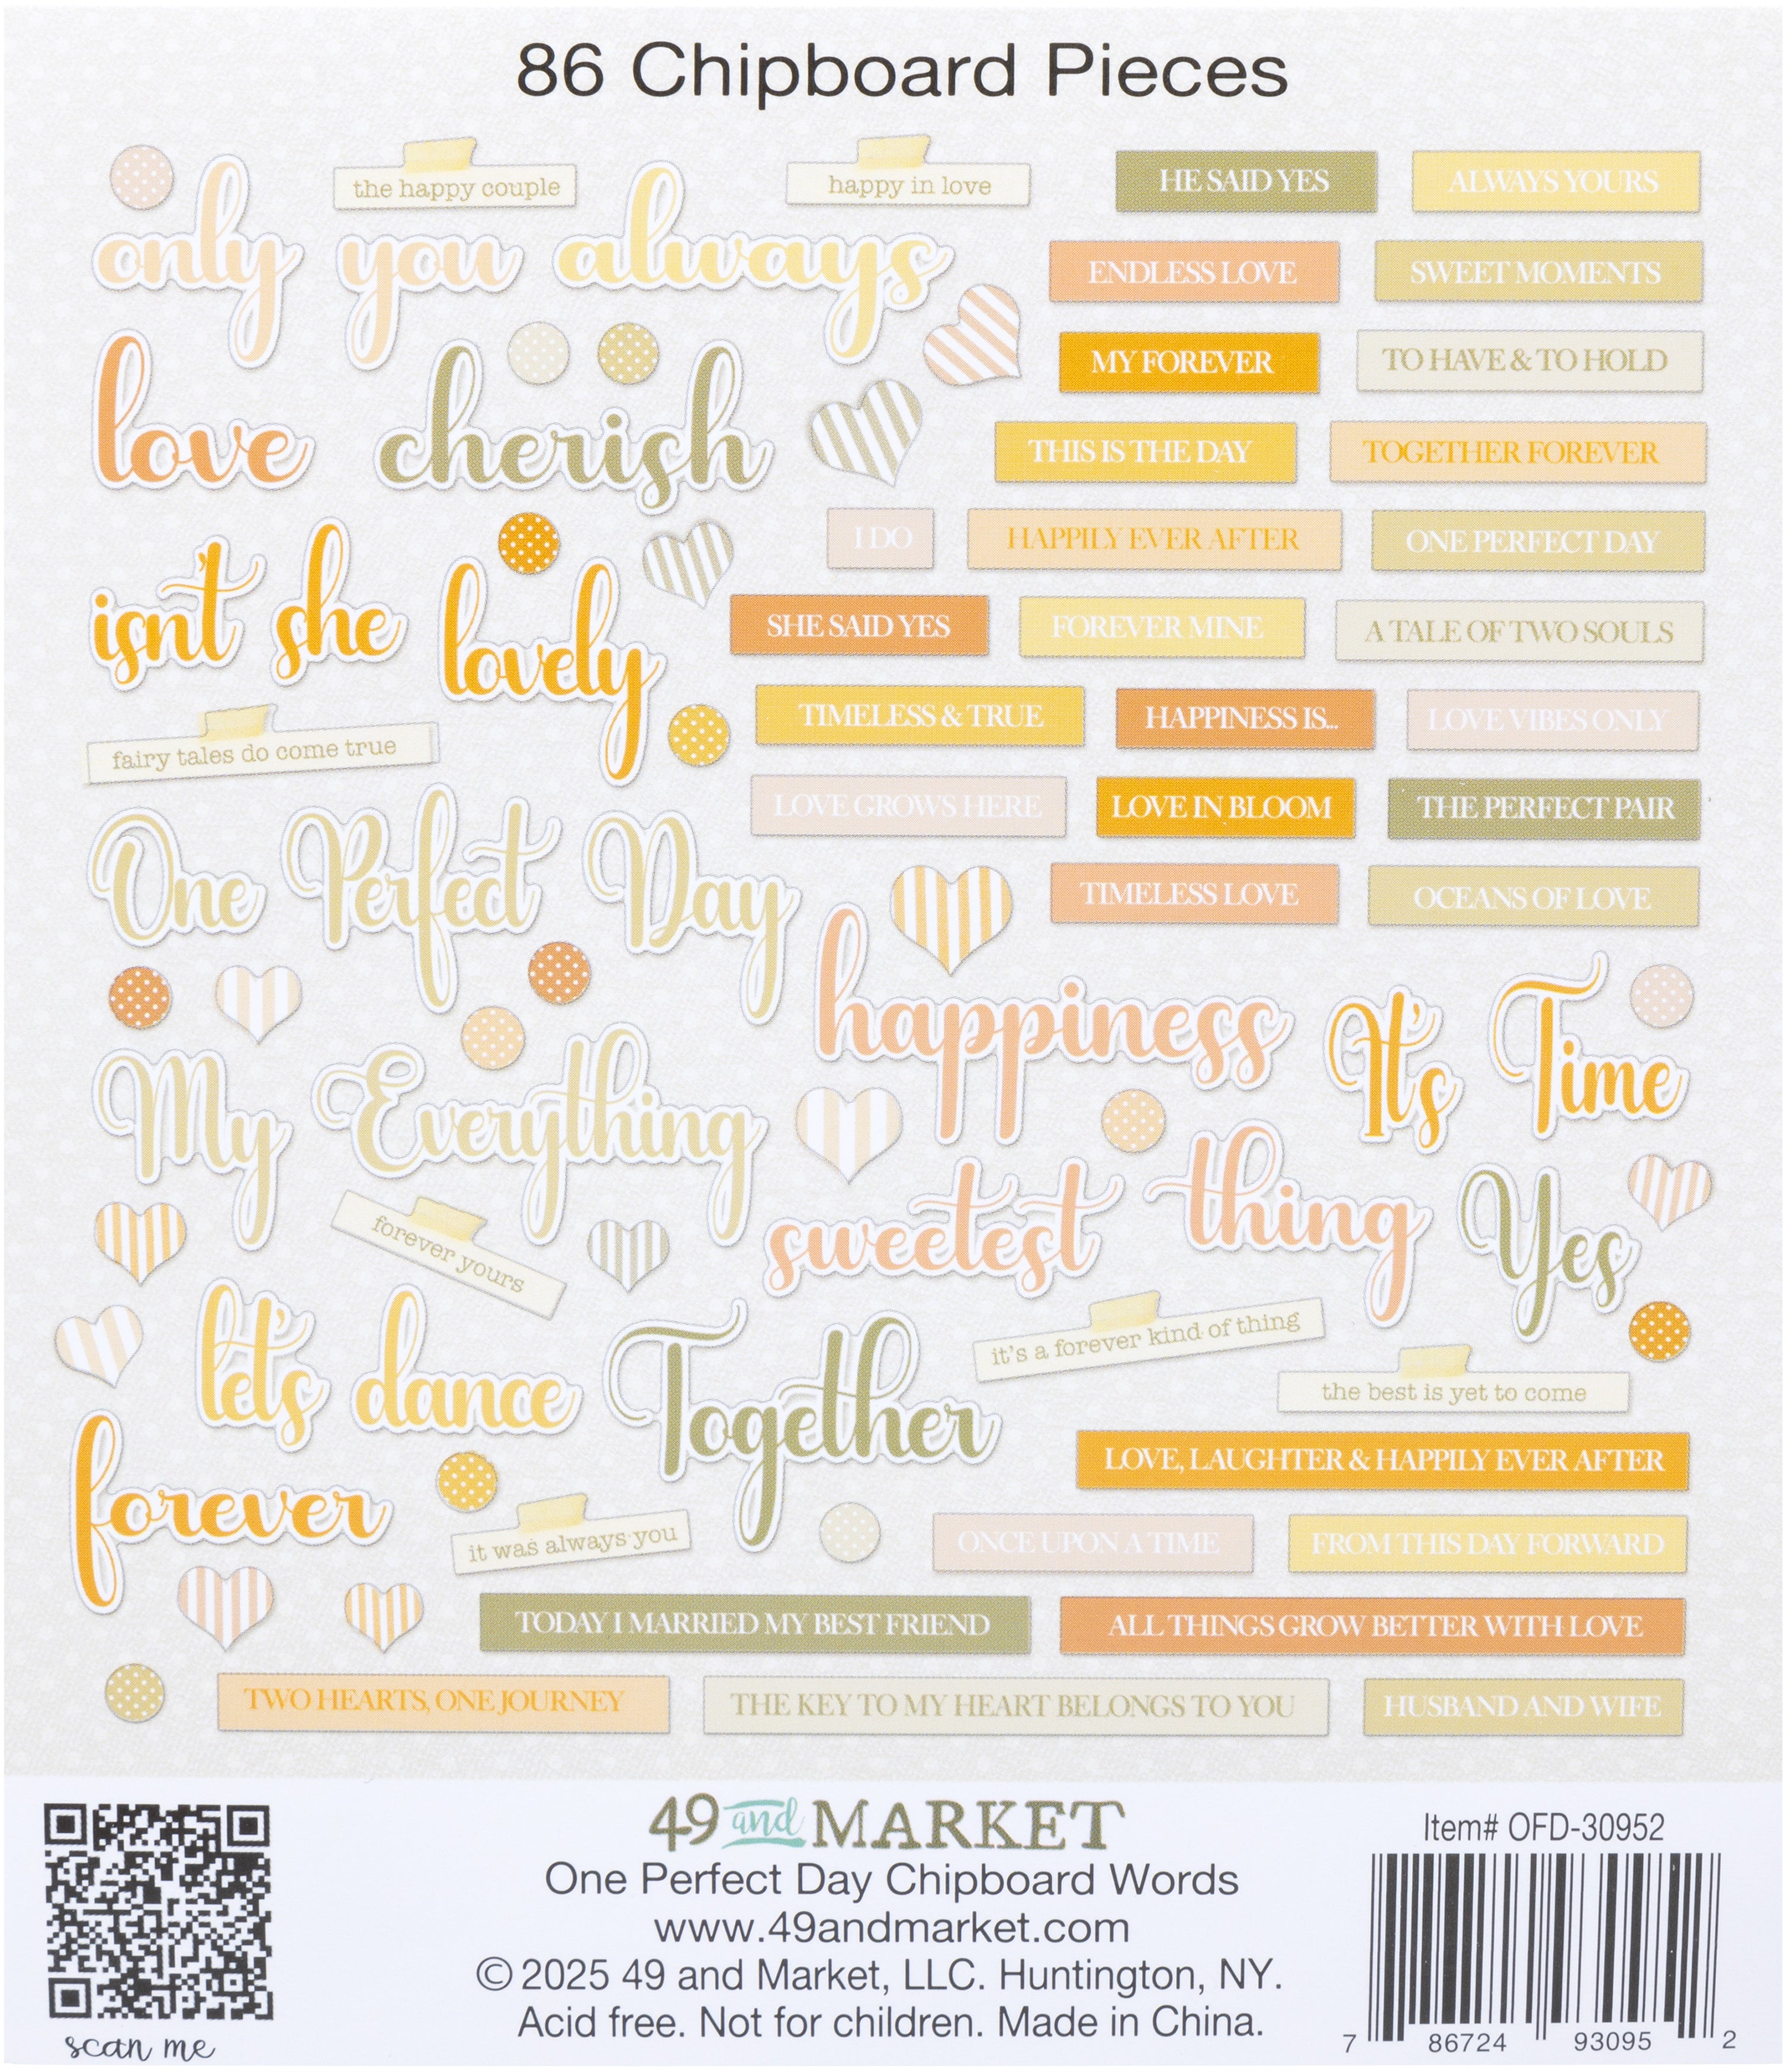 86 Chipboard Pieces
the happy couple
happy in love
HE SAID YES
ALWAYS YOURS
only you always
ENDLESS LOVE
SWEET MOMENTS
MY FOREVER
TO HAVE & TO HOLD
love cherish
THIS IS THE DAY
TOGETHER FOREVER
I DO
HAPPILY EVER AFTER
ONE PERFECT DAY
isn't she lovely
SHE SAID YES
FOREVER MINE
A TALE OF TWO SOULS
TIMELESS & TRUE
HAPPINESS IS...
LOVE VIBES ONLY
fairy tales do come true
LOVE GROWS HERE
LOVE IN BLOOM
THE PERFECT PAIR
One Perfect Day
TIMELESS LOVE
OCEANS OF LOVE
happiness
It's Time
My Everything
sweetest thing
Yes
forever yours
let's dance
Together
it's a forever kind of thing
the best is yet to come
LOVE, LAUGHTER & HAPPILY EVER AFTER
forever
it was always you
ONCE UPON A TIME
FROM THIS DAY FORWARD
TODAY I MARRIED MY BEST FRIEND
ALL THINGS GROW BETTER WITH LOVE
TWO HEARTS, ONE JOURNEY
THE KEY TO MY HEART BELONGS TO YOU
HUSBAND AND WIFE
scan me
49 and MARKET
One Perfect Day Chipboard Words
www.49andmarket.com
© 2025 49 and Market, LLC. Huntington, NY.
Acid free. Not for children. Made in China.
Item# OFD-30952
7 86724 93095 2